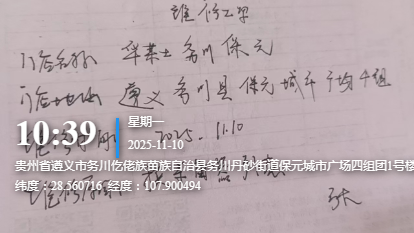 维修工单
门店名称 华莱士务川保元
门店地址 遵义务川县保元城市广场4组
2025.11.10
10:39
星期一
2025-11-10
贵州省遵义市务川仡佬族苗族自治县务川丹砂街道保元城市广场四组团1号楼
纬度：28.560716 经度：107.900494